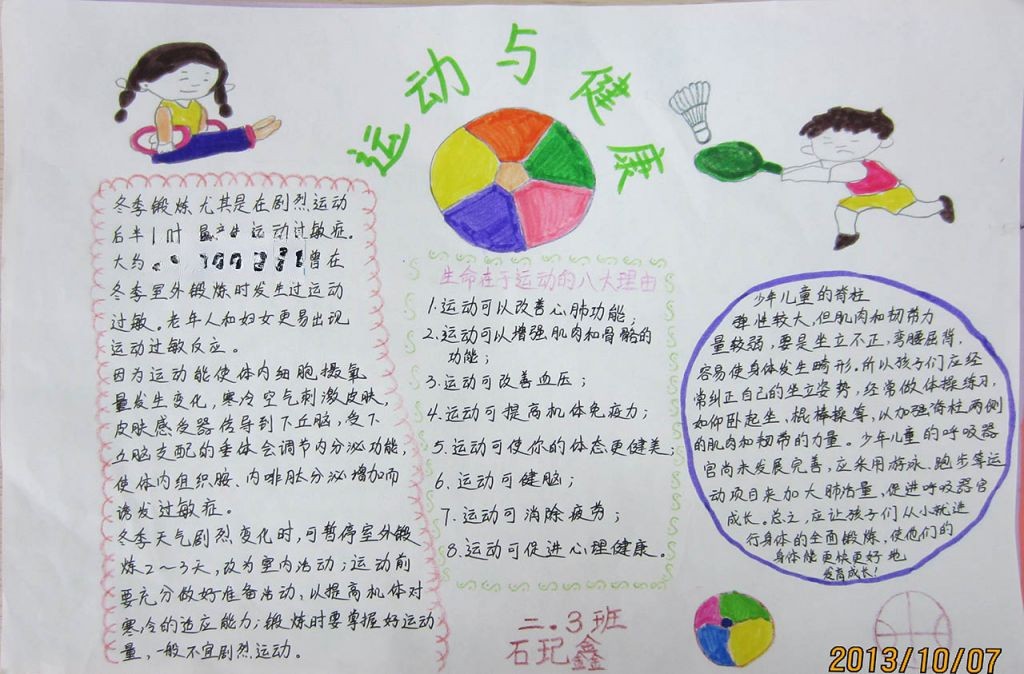 运动与健康
冬季锻炼尤其是在剧烈运动
后半 运动过敏症。
大约 曾在
冬季室外锻炼时发生过运动
过敏。老年人和妇女更易出现
运动过敏反应。
因为运动能使体内细胞摄氧
量发生变化,寒冷空气刺激皮肤,
皮肤感受器传导到下丘脑,受下
丘脑支配的垂体会调节内分泌功能,
使体内组织胺、内啡肽分泌增加而
诱发过敏症。
冬季天气剧烈变化时,可暂停室外锻
炼2~3天,改为室内活动;运动前
要充分做好准备活动,以提高机体对
寒冷的适应能力;锻炼时要掌握好运动
量,一般不宜剧烈运动。
生命在于运动的八大理由
1.运动可以改善心肺功能;
2.运动可以增强肌肉和骨骼的
功能;
3.运动可改善血压;
4.运动可提高机体免疫力;
5.运动可使你的体态更健美;
6.运动可健脑;
7.运动可消除疲劳;
8.运动可促进心理健康。
少年儿童的脊柱
弹性较大,但肌肉和韧带力
量较弱,要是坐立不正,弯腰屈背,
容易使身体发生畸形。所以孩子们应经
常纠正自己的坐立姿势,经常做体操练习,
如仰卧起坐,棍棒操等,以加强脊柱两侧
的肌肉和韧带的力量。少年儿童的呼吸器
官尚未发展完善,应采用游泳、跑步等运
动项目来加大肺活量,促进呼吸器官
成长。总之,应让孩子们从小就进
行身体的全面锻炼,使他们的
身体能更快更好地
发育成长!
二.3班
石玘鑫
2013/10/07